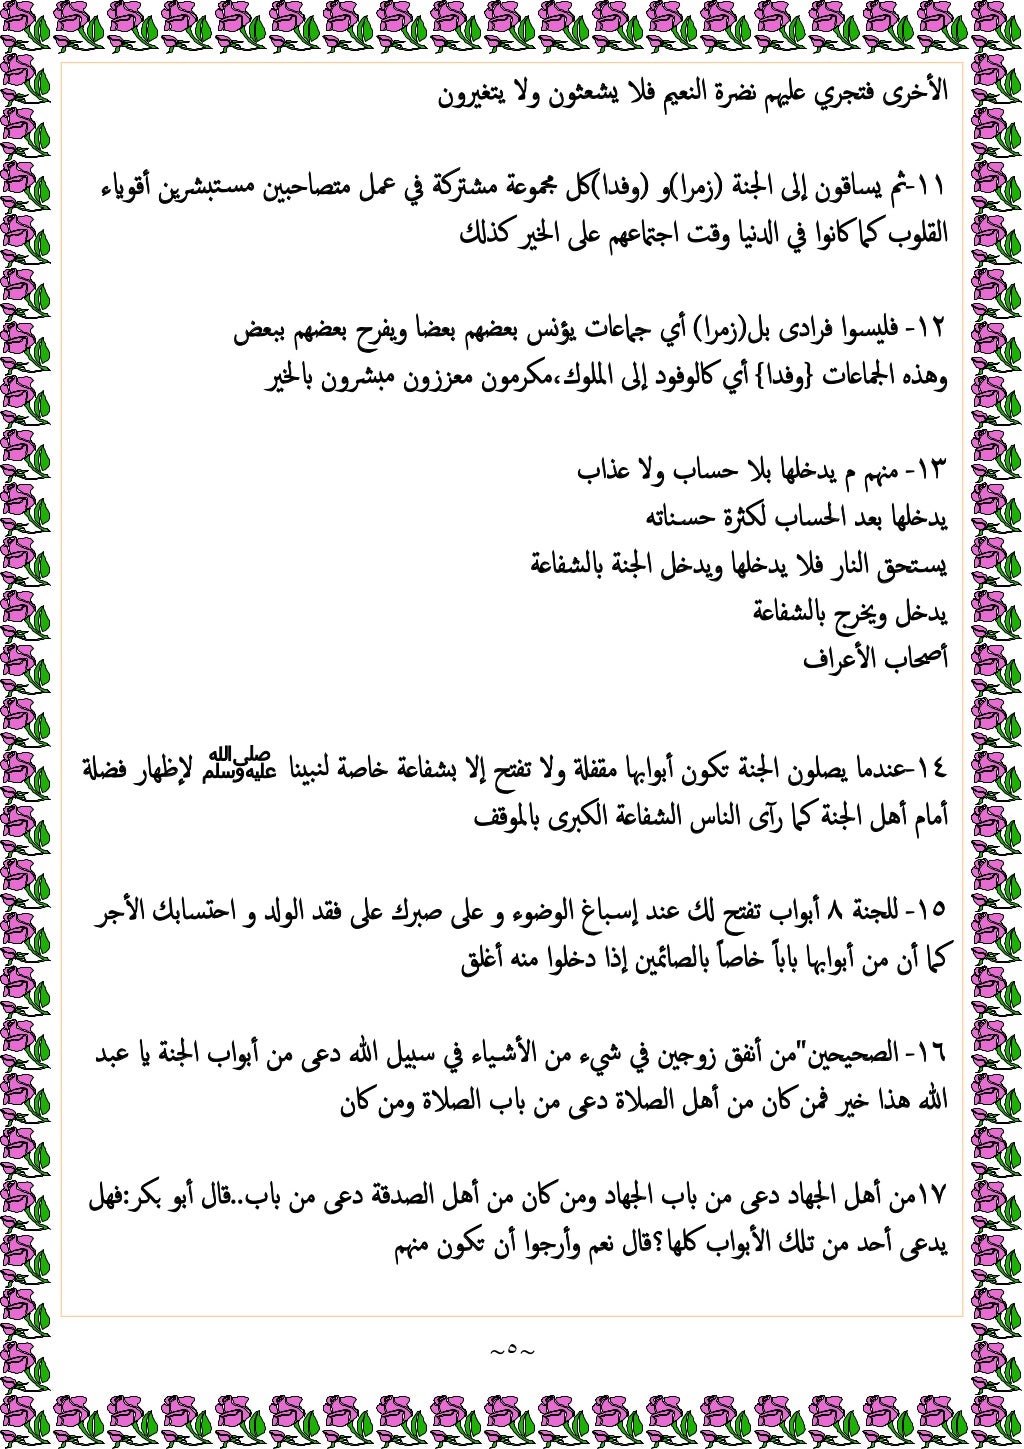 الأخرى فتجري عليهم نضرة النعيم فلا يشعثون ولا يتغيرون
١١-ثم يساقون إلى الجنة (زمرا)و (وفدا)كل مجموعة مشتركة في عمل متصاحبين مستبشرين أقوياء
القلوب كما كانوا في الدنيا وقت اجتماعهم على الخير كذلك
١٢- فليسوا فرادى بل(زمرا) أي جماعات يؤنس بعضهم بعضا ويفرح بعضهم ببعض
وهذه الجماعات {وفدا} أي كالوفود إلى الملوك،مكرمون معززون مبشرون بالخير
١٣- منهم م يدخلها بلا حساب ولا عذاب
يدخلها بعد الحساب لكثرة حسناته
يستحق النار فلا يدخلها ويدخل الجنة بالشفاعة
يدخل ويخرج بالشفاعة
أصحاب الأعراف
١٤-عندما يصلون الجنة تكون أبوابها مقفلة ولا تفتح إلا بشفاعة خاصة لنبينا ﷺ لإظهار فضلة
أمام أهل الجنة كما رآى الناس الشفاعة الكبرى بالموقف
١٥- للجنة ٨ أبواب تفتح لك عند إسباغ الوضوء و على صبرك على فقد الولد و احتسابك الأجر
كما أن من أبوابها باباً خاصاً بالصائمين إذا دخلوا منه أغلق
١٦- الصحيحين"من أنفق زوجين في شيء من الأشياء في سبيل الله دعى من أبواب الجنة يا عبد
الله هذا خير فمن كان من أهل الصلاة دعى من باب الصلاة ومن كان
١٧من أهل الجهاد دعى من باب الجهاد ومن كان من أهل الصدقة دعى من باب..قال أبو بكر:فهل
يدعى أحد من تلك الأبواب كلها؟قال نعم وأرجوا أن تكون منهم
~٥~